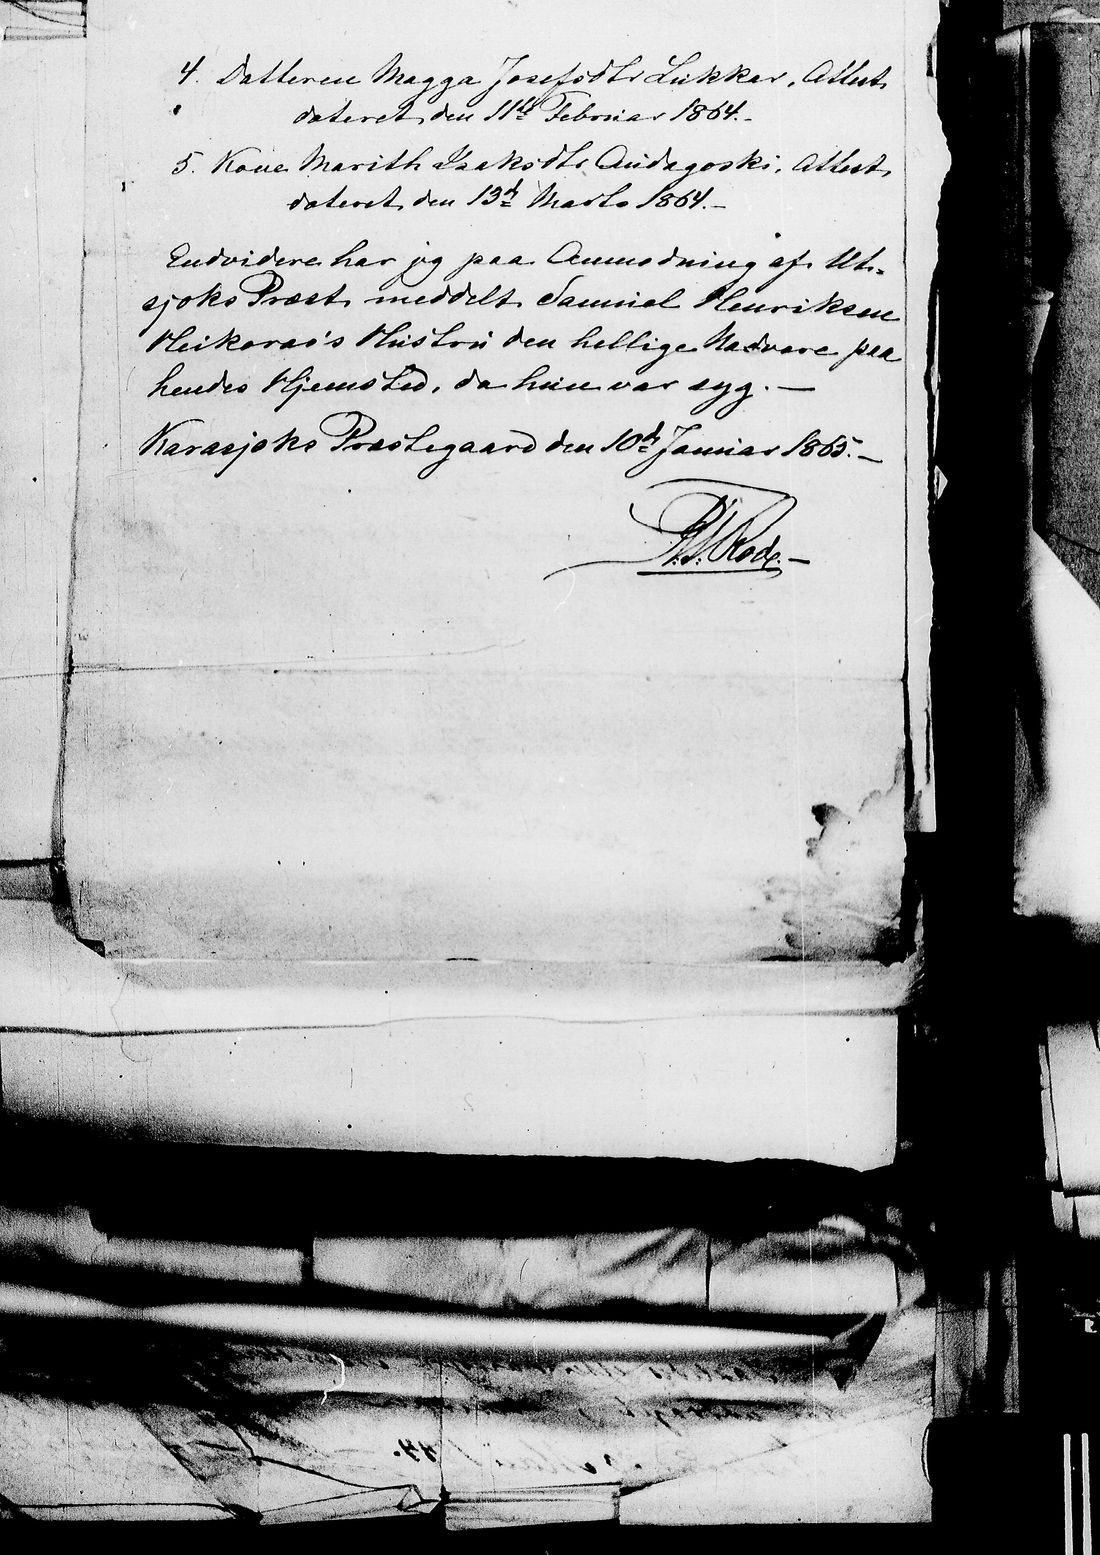 4. Datteren Magga Josefsdtr Lukkar, Attest
dateret den 11te Februar 1864.-
5. Kone Marith Isaksdtr Audagoski, Attest
dateret den 13de Marts 1864.-
Endvidere har jeg paa Anmodning af Ut-
sjoks Præst meddelt Samuel Henriksen
Heikoras's Hustru den hellige Nadvere paa
hendes Hjemsted, da hun var syg. —
Karasjoks Præstegaard den 10de Januar 1865.—
Rode.—